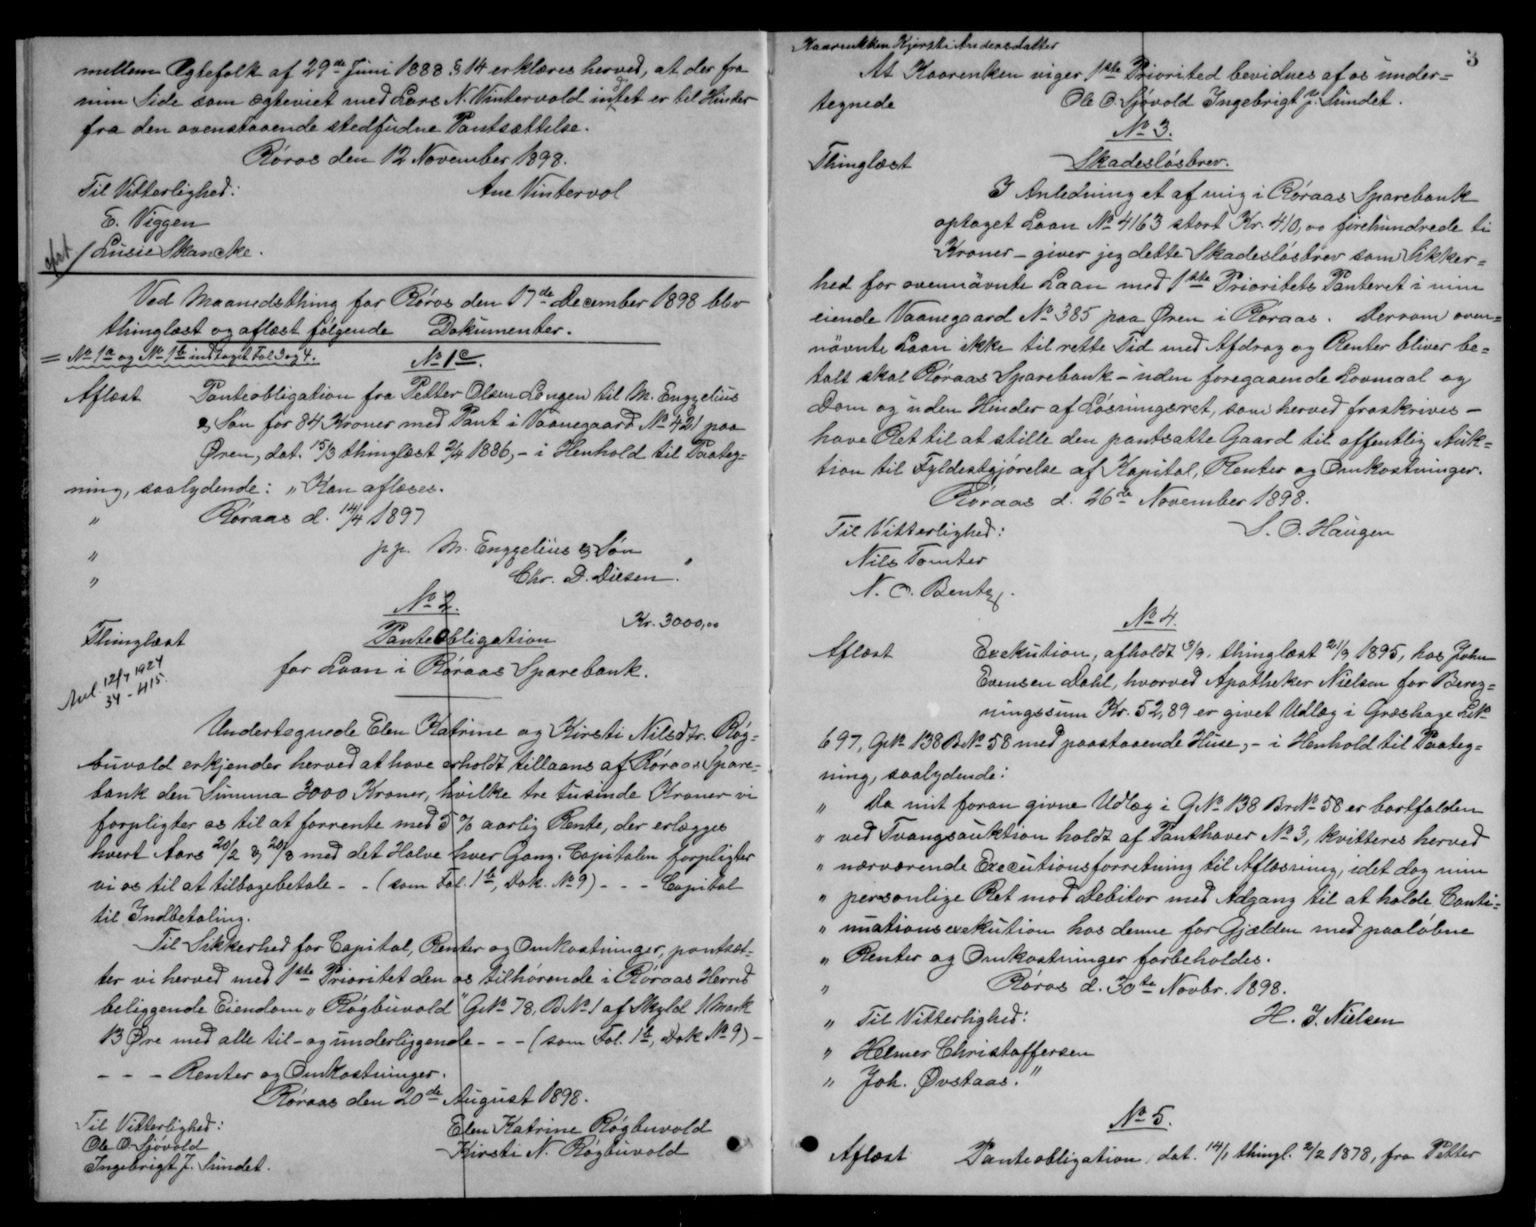 mellem Ægtefolk af 29de Juni 1888 § 14 erklæres herved, at der fra
min Side som ægteviet med Lars N. Vintervold intet er til Hinder
fra den ovenstaaende stedfudne Pantsættelse.
Røros den 12 November 1898.
Til Vitterlighed: Ane Vintervol
E. Viggen
Lusie Skancke.
Ved Maanedsthing for Røros den 17de December 1898 blev
thinglæst og aflæst følgende Dokumenter.
= No 1a og No 1b indtaget Fol 3 og 4. No 1c.
Aflæst Panteobligation fra Petter Olsen Lengen til M. Engzelius
& Søn for 84 Kroner med Pant i Vaanegaard No 421 paa
Øren, dat. 15/3 thinglæst 2/4 1886, - i Henhold til Paateg-
ning, saalydende: „Kan aflæses.
„ Røraas d. 14/4 1897
„ pp. M. Engzelius & Søn
„ Chr. D. Diesen.“
No 2.
Thinglæst Panteobligation Kr. 3000,00
for Laan i Røraas Sparebank.
Avl 12/7 1924
34 - 415.
Undertegnede Elen Katrine og Kirsti Nilsdtr. Røg-
buvold erkjender herved at have erholdt tillaans af Røraas Spare-
bank den Summa 3000 Kroner, hvilke tre tusinde Kroner vi
forpligter os til at forrente med 5 % aarlig Rente, der erlægges
hvert Aars 20/2 & 20/8 med det Halve hver Gang. Capitalen forpligter
vi os til at tilbagebetale - - (som Fol. 1b, Dok. No 9) - - - Capital
til Indbetaling.
Til Sikkerhed for Capital, Renter og Omkostninger, pantsæt-
ter vi herved med 1ste Prioritet den os tilhørende i Røraas Herred
beliggende Eiendom „Røgbuvold“ GNo 78, BNo 1 af Skyld 1 Mark
13 Øre med alle til- og underliggende - - - (som Fol. 1b, Dok No 9) -
- - - Renter og Omkostninger.
Røraas den 20de August 1898.
Til Vitterlighed: Elen Katrine Røgbuvold
Ole O Sjøvold Kirsti N. Røgbuvold
Ingebrigt J. Sundet.
3
Kaarenkken Kjersti Andersdatter
At Kaarenken viger 1ste Priorited bevidnes af os under-
tegnede Ole O. Sjøvold Ingebrigt J. Sundet.
No 3.
Thinglæst Skadesløsbrev.
I Anledning et af mig i Røraas Sparebank
optaget Laan No 4163 stort Kr. 410,00 firehundrede ti
Kroner - giver jeg dette Skadesløsbrev som Sikker-
hed for ovennævnte Laan med 1ste Prioritets Panteret i min
eiende Vaanegaard No 385 paa Øren i Røraas. Dersom oven-
nævnte Laan ikke til rette Tid med Afdrag og Renter bliver be-
talt skal Røraas Sparebank - uden foregaaende Lovmaal og
Dom og uden Hinder af Løsningsret, som herved fraskrives -
have Ret til at stille den pantsatte Gaard til offentlig Auk-
tion til Fyldestgjørelse af Kapital, Renter og Omkostninger.
Røraas d. 26de November 1898.
Til Vitterlighed: S. O. Haugen
Nils Tomter
N. O. Bentz.
No 4.
Aflæst Exekution, afholdt 3/9, thinglæst 21/9 1895, hos John
Evensen Dahl, hvorved Apotheker Nielsen for Bereg-
ningssum Kr. 52,89 er givet Udlæg i Græshage LNo
697, GNo 138 BNo 58 med paastaaende Huse, - i Henhold til Paateg-
ning, saalydende:
„ Da mit foran givne Udlæg i GNo 138 BrNo 58 er bortfalden
„ ved Tvangsauktion holdt af Panthaver No 3, kvitteres herved
„ nærværende Executionsforretning til Aflæsning, idet dog min
„ personlige Ret mod Debitor med Adgang til at holde Conti-
„ nuationsexekution hos denne for Gjælden med paaløbne
„ Renter og Omkostninger forbeholdes.
„ Røros d. 30te Novbr. 1898.
„ Til Vitterlighed: H. J. Nielsen
„ Helmer Christoffersen
„ Joh. Øvstaas.“
No 5.
Aflæst Panteobligation dat. 14/1 thingl. 2/2 1878, fra Petter